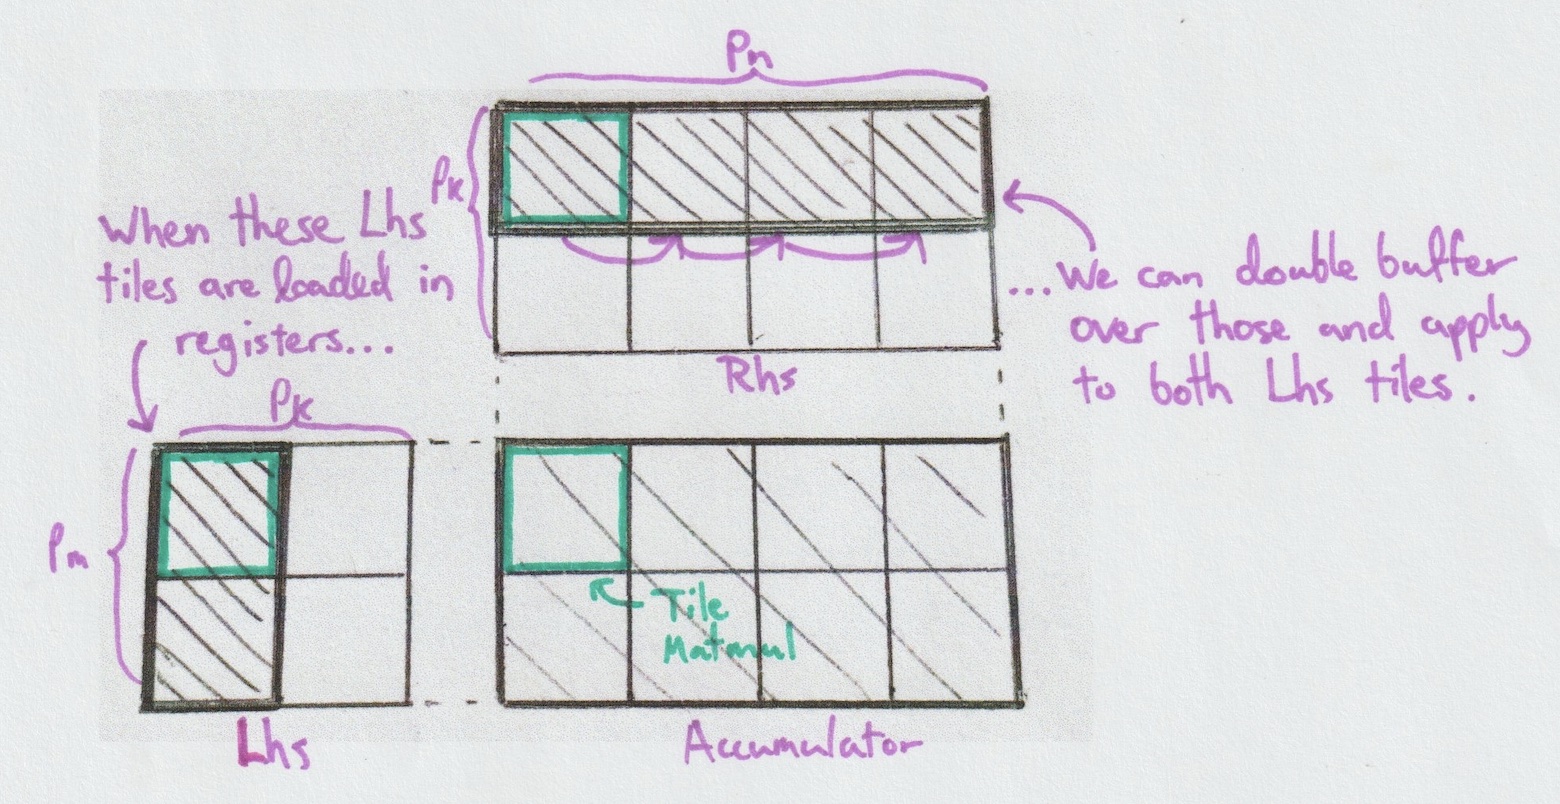 Pn
Pk
When these Lhs
tiles are loaded in
registers...
...We can double buffer
over those and apply
to both Lhs tiles.
Rhs
Pk
Pm
Tile
Matmul
Lhs
Accumulator